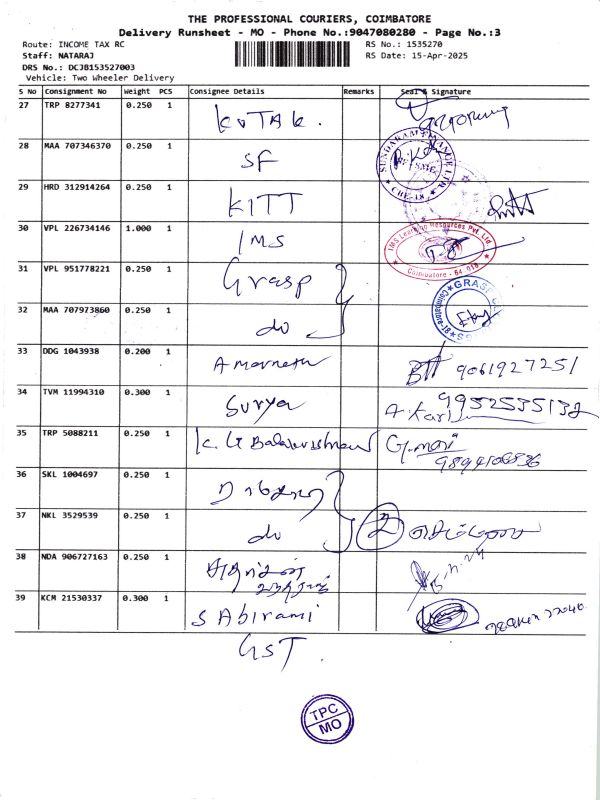 THE PROFESSIONAL COURIERS, COIMBATORE
Delivery Runsheet - MO - Phone No.:9047080280 - Page No.:3
Route: INCOME TAX RC RS No.: 1535270
Staff: NATARAJ RS Date: 15-Apr-2025
DRS No.: DCJB153527003
Vehicle: Two Wheeler Delivery
S No Consignment No Weight PCS Consignee Details Remarks Seal & Signature
27 TRP 8277341 0.250 1 KOTAK.
28 MAA 707346370 0.250 1 SF
29 HRD 312914264 0.250 1 KITT
30 VPL 226734146 1.000 1 IMS
IMS Learning Resources Pvt. Ltd.
Coimbatore - 64
31 VPL 951778221 0.250 1 Grasp
GRASP
32 MAA 707973860 0.250 1 do
33 DDG 1043938 0.200 1 Amarnath 9061927251
34 TVM 11994310 0.300 1 Surya 9952535132
35 TRP 5088211 0.250 1 K. G Balakrishnan G. mari
36 SKL 1004697 0.250 1
37 NKL 3529539 0.250 1 do 2
38 NDA 906727163 0.250 1
39 KCM 21530337 0.300 1 S Abirami
GST
TPC
MO